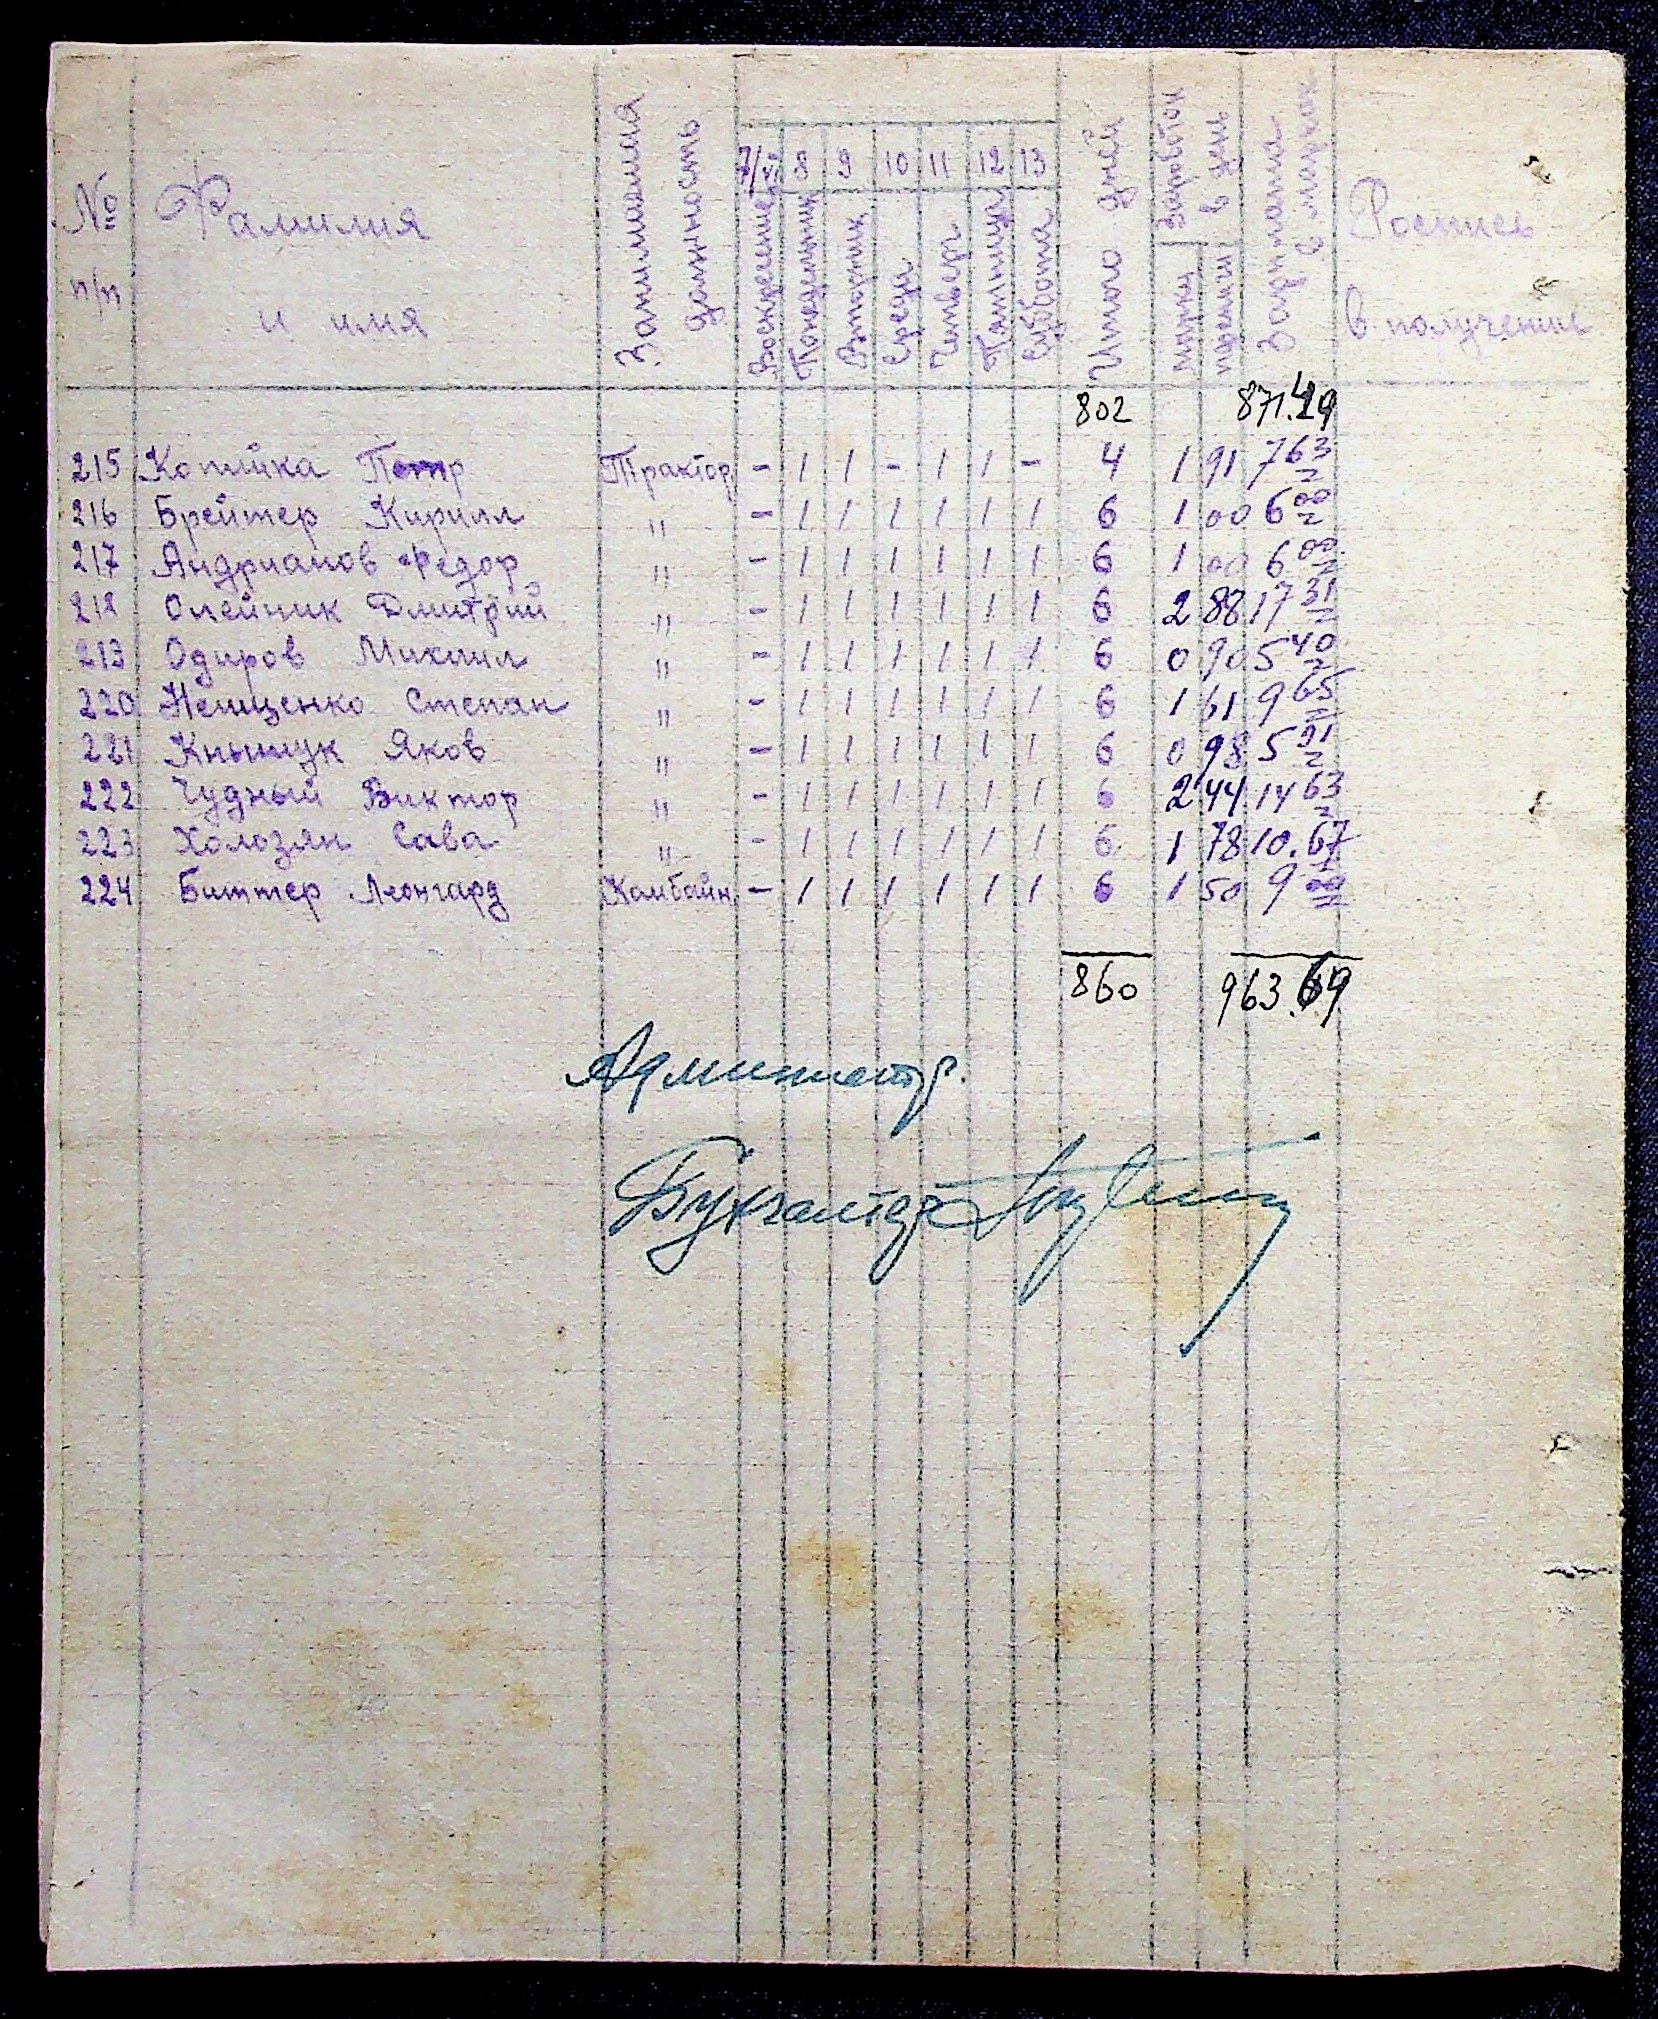 № п/п Фамилия и имя Занимаемая должность 7/VI Воскресение 8 Понедельник 9 Вторник 10 Среда 11 Четверг 12 Пятница 13 Суббота Итого дней Заработок в день марки пфенниги Зарплата в марках Роспись в получении
802 871.29
215 Копийка Петр Трактор. - 1 1 - 1 1 - 4 1 91 7 63
216 Брейтер Кирилл " - 1 1 1 1 1 1 6 1 00 6 00
217 Андрианов Федор " - 1 1 1 1 1 1 6 1 00 6 00
218 Олейник Дмитрий " - 1 1 1 1 1 1 6 2 88 17 31
213 Одиров Михаил " - 1 1 1 1 1 1 6 0 90 5 40
220 Нещценко Степан " - 1 1 1 1 1 1 6 1 61 9 65
221 Кнышук Яков " - 1 1 1 1 1 1 6 0 98 5 91
222 Чудный Виктор " - 1 1 1 1 1 1 6 2 44 14 63
223 Холозян Сава " - 1 1 1 1 1 1 6 1 78 10.67
224 Биттер Леонгард Комбайн. - 1 1 1 1 1 1 6 1 50 9 00
860 963.69
Администр.
Бухгалтер